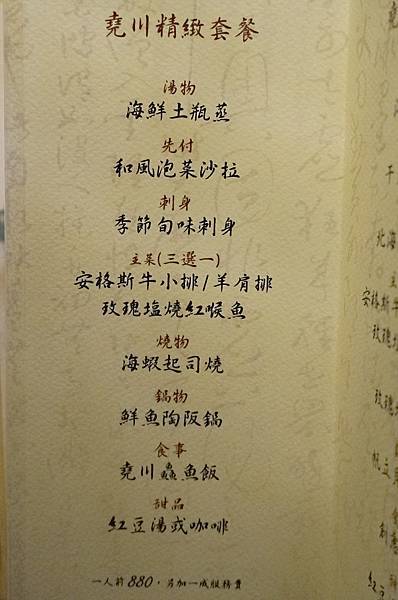 堯川精緻套餐
湯物
海鮮土瓶蒸
先付
和風泡菜沙拉
刺身
季節旬味刺身
主菜(三選一)
安格斯牛小排/羊肩排
玫瑰塩燒紅喉魚
燒物
海蝦起司燒
鍋物
鮮魚陶阪鍋
食事
堯川鱻魚飯
甜品
紅豆湯或咖啡
一人前880·另加一成服務費